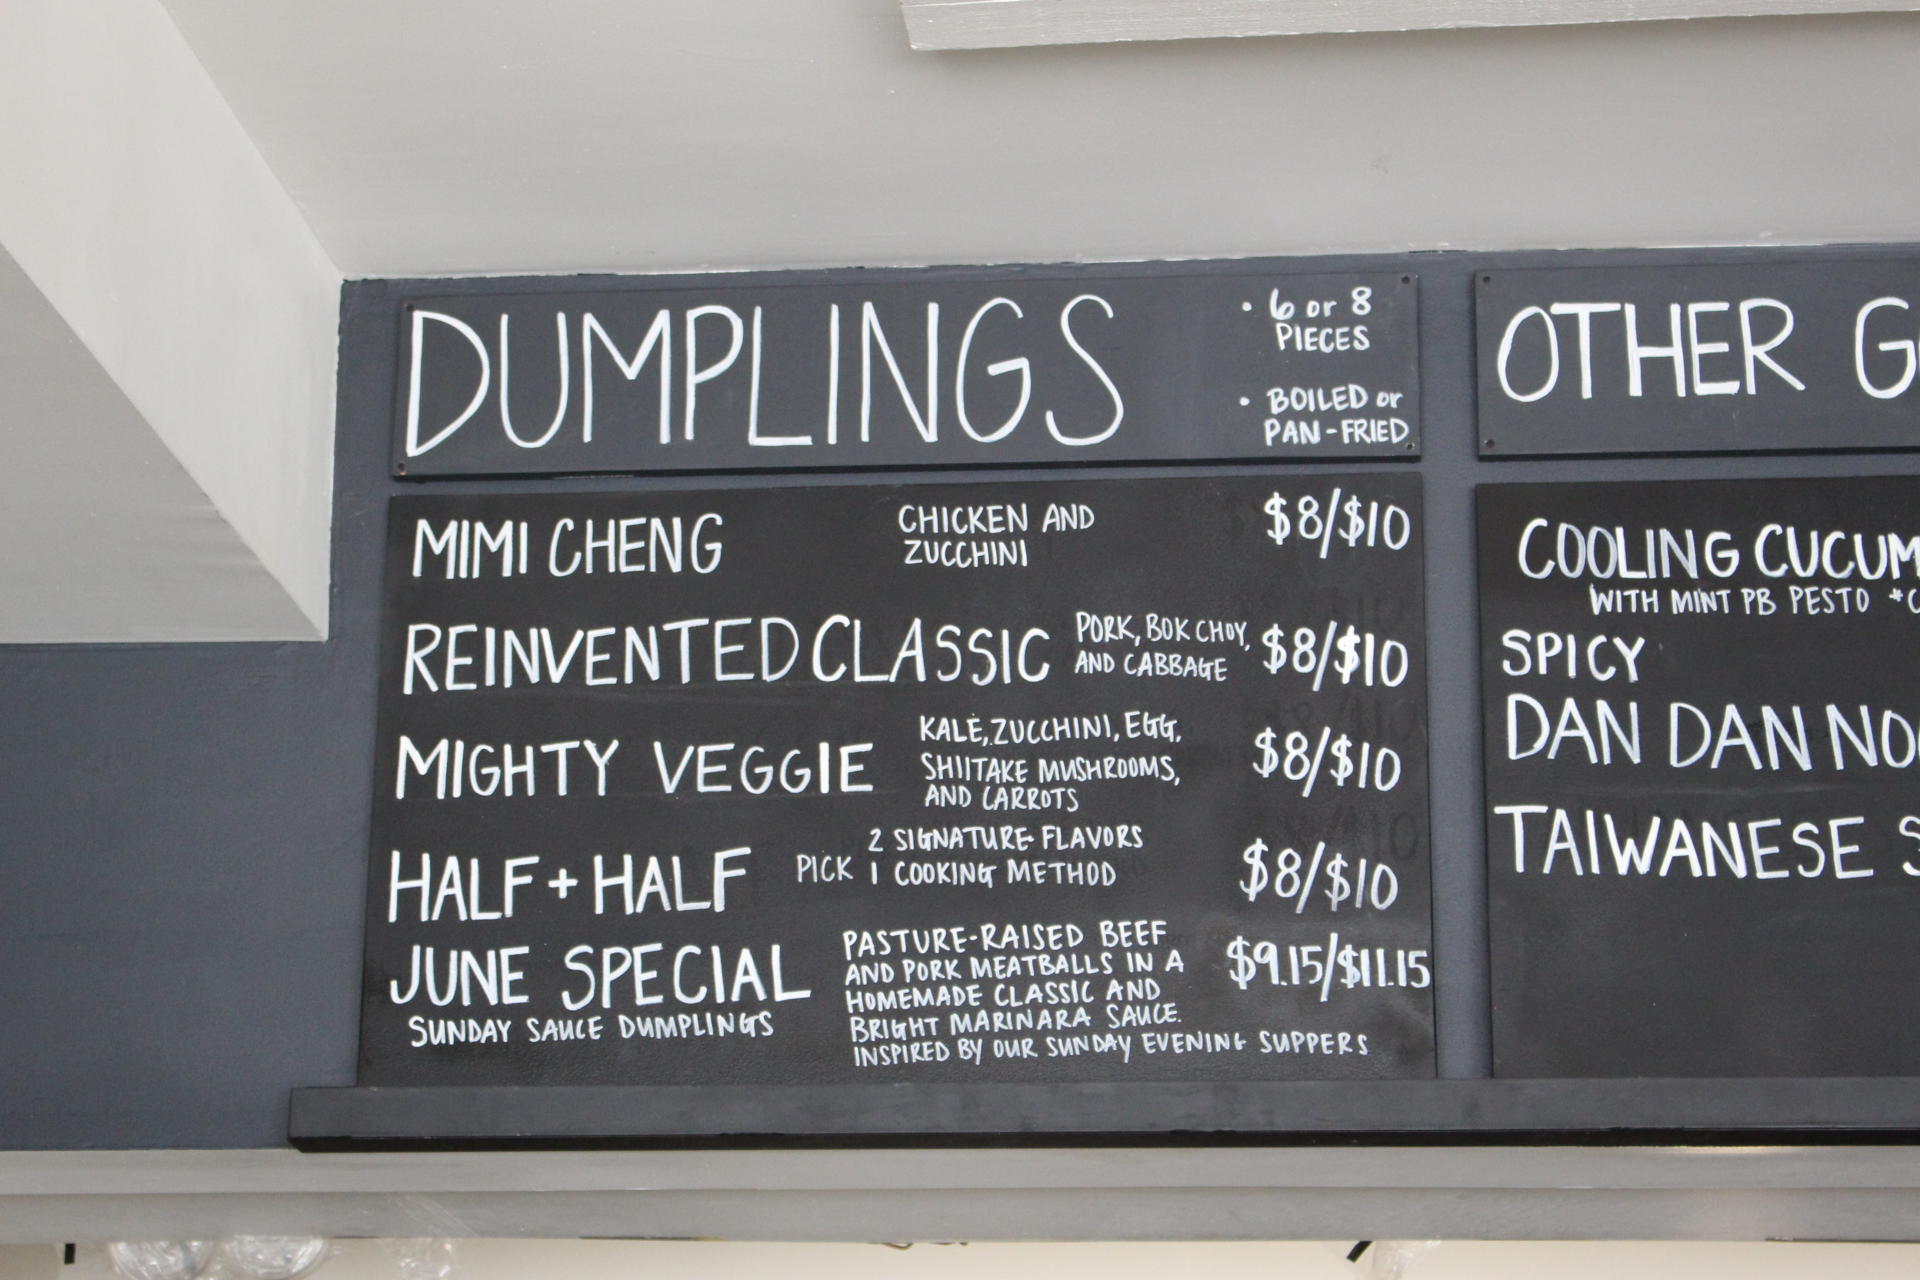 DUMPLINGS
• 6 or 8
PIECES
• BOILED or
PAN-FRIED
MIMI CHENG
CHICKEN AND
ZUCCHINI
$8/$10
REINVENTED CLASSIC
PORK, BOK CHOY,
AND CABBAGE
$8/$10
MIGHTY VEGGIE
KALE, ZUCCHINI, EGG,
SHIITAKE MUSHROOMS,
AND CARROTS
$8/$10
HALF + HALF
PICK
2 SIGNATURE FLAVORS
1 COOKING METHOD
$8/$10
JUNE SPECIAL
SUNDAY SAUCE DUMPLINGS
PASTURE-RAISED BEEF
AND PORK MEATBALLS IN A
HOMEMADE CLASSIC AND
BRIGHT MARINARA SAUCE.
INSPIRED BY OUR SUNDAY EVENING SUPPERS
$9.15/$11.15
OTHER
COOLING
WITH MINT PB PESTO
SPICY
DAN DAN
TAIWANESE